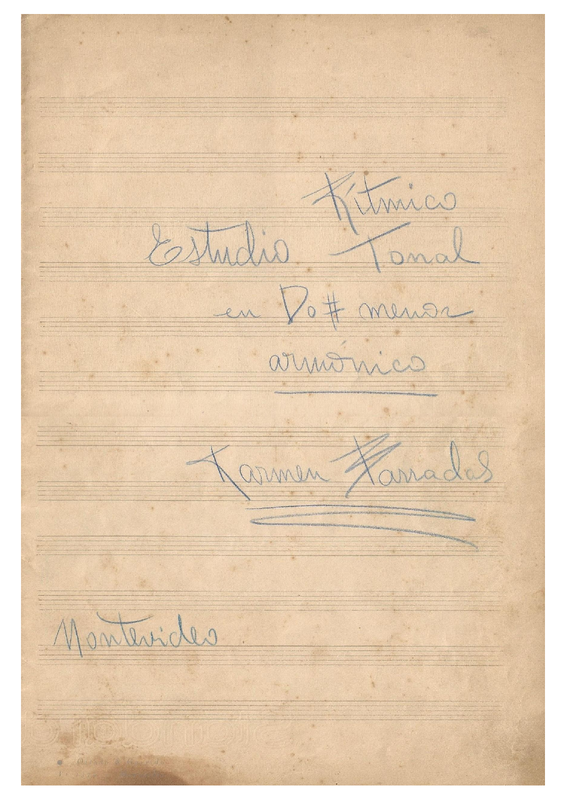 Rítmico
Estudio Tonal
en Do# menor
armónico
Carmen Barradas
Montevideo